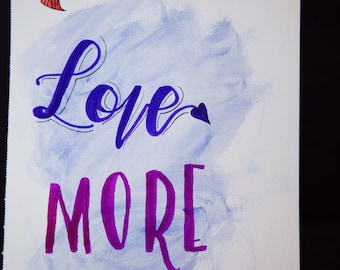 Love
MORE